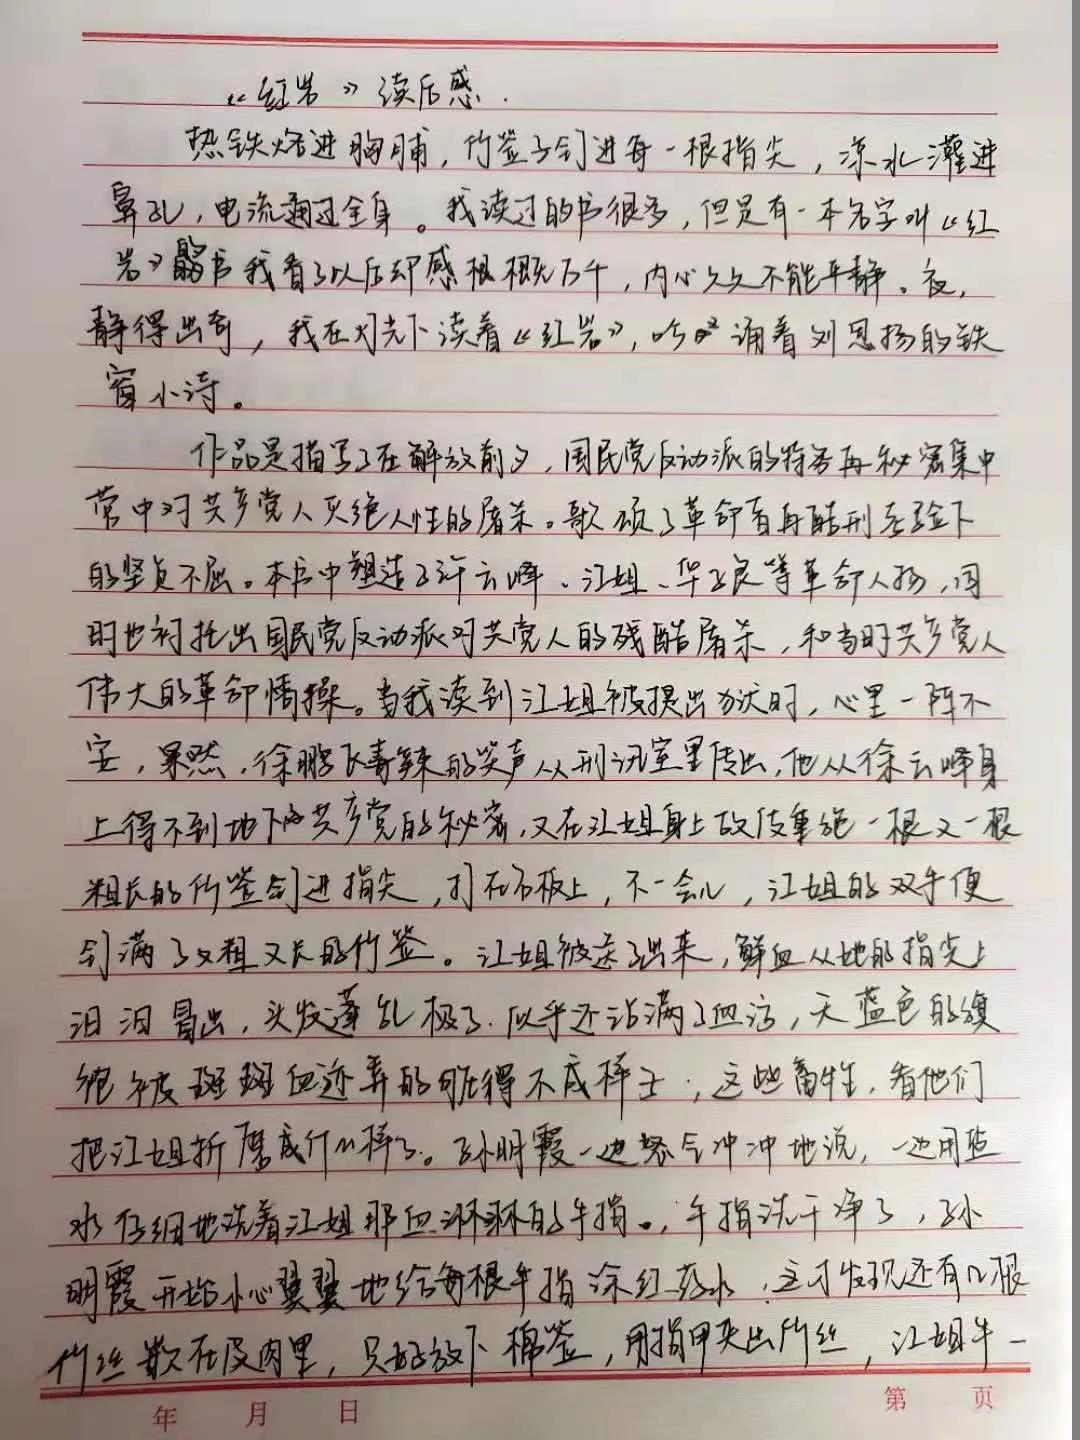 《红岩》读后感.
热铁烙进胸脯，竹签子钉进每一根指尖，凉水灌进
鼻孔，电流通过全身。我读过的书很多，但是有一本名字叫《红
岩》的书我看了以后却感根概万千，内心久久不能平静。夜，
静得出奇，我在灯光下读着《红岩》，吟诵着刘思扬的铁
窗小诗。
作品是描写了在解放前夕，国民党反动派的特务再秘密集中
营中对共产党人灭绝人性的屠杀。歌颂了革命者再酷刑考验下
的坚贞不屈。本书中塑造了许云峰、江姐、华子良等革命人物，同
时也衬托出国民党反动派对共党人的残酷屠杀，和当时共产党人
伟大的革命情操。当我读到江姐被提出办决时，心里一阵不
安，果然，徐鹏飞毒辣的笑声从刑讯室里传出，他从徐云峰身
上得不到地下的共产党的秘密，又在江姐身上故伎重绝一根又一根
粗长的竹签钉进指尖，打在石板上，不一会儿，江姐的双手便
钉满了又粗又长的竹签。江姐被送了出来，鲜血从她的指尖上
汩汩冒出，头发蓬乱极了.似乎还沾满了血污，天蓝色的旗
袍被斑斑血迹弄的脏得不成样子，这些畜牲，看他们
把江姐折磨成什么样了。孙明霞一边怒气冲冲地说，一边用盐
水仔细地洗着江姐那血淋淋的手指。，手指洗干净了，孙
明霞开始小心翼翼地给每根手指涂红药水，这才发现还有几根
竹丝嵌在皮肉里，只好放下棉签，用指甲夹出竹丝，江姐牛一
年 月 日 第 页